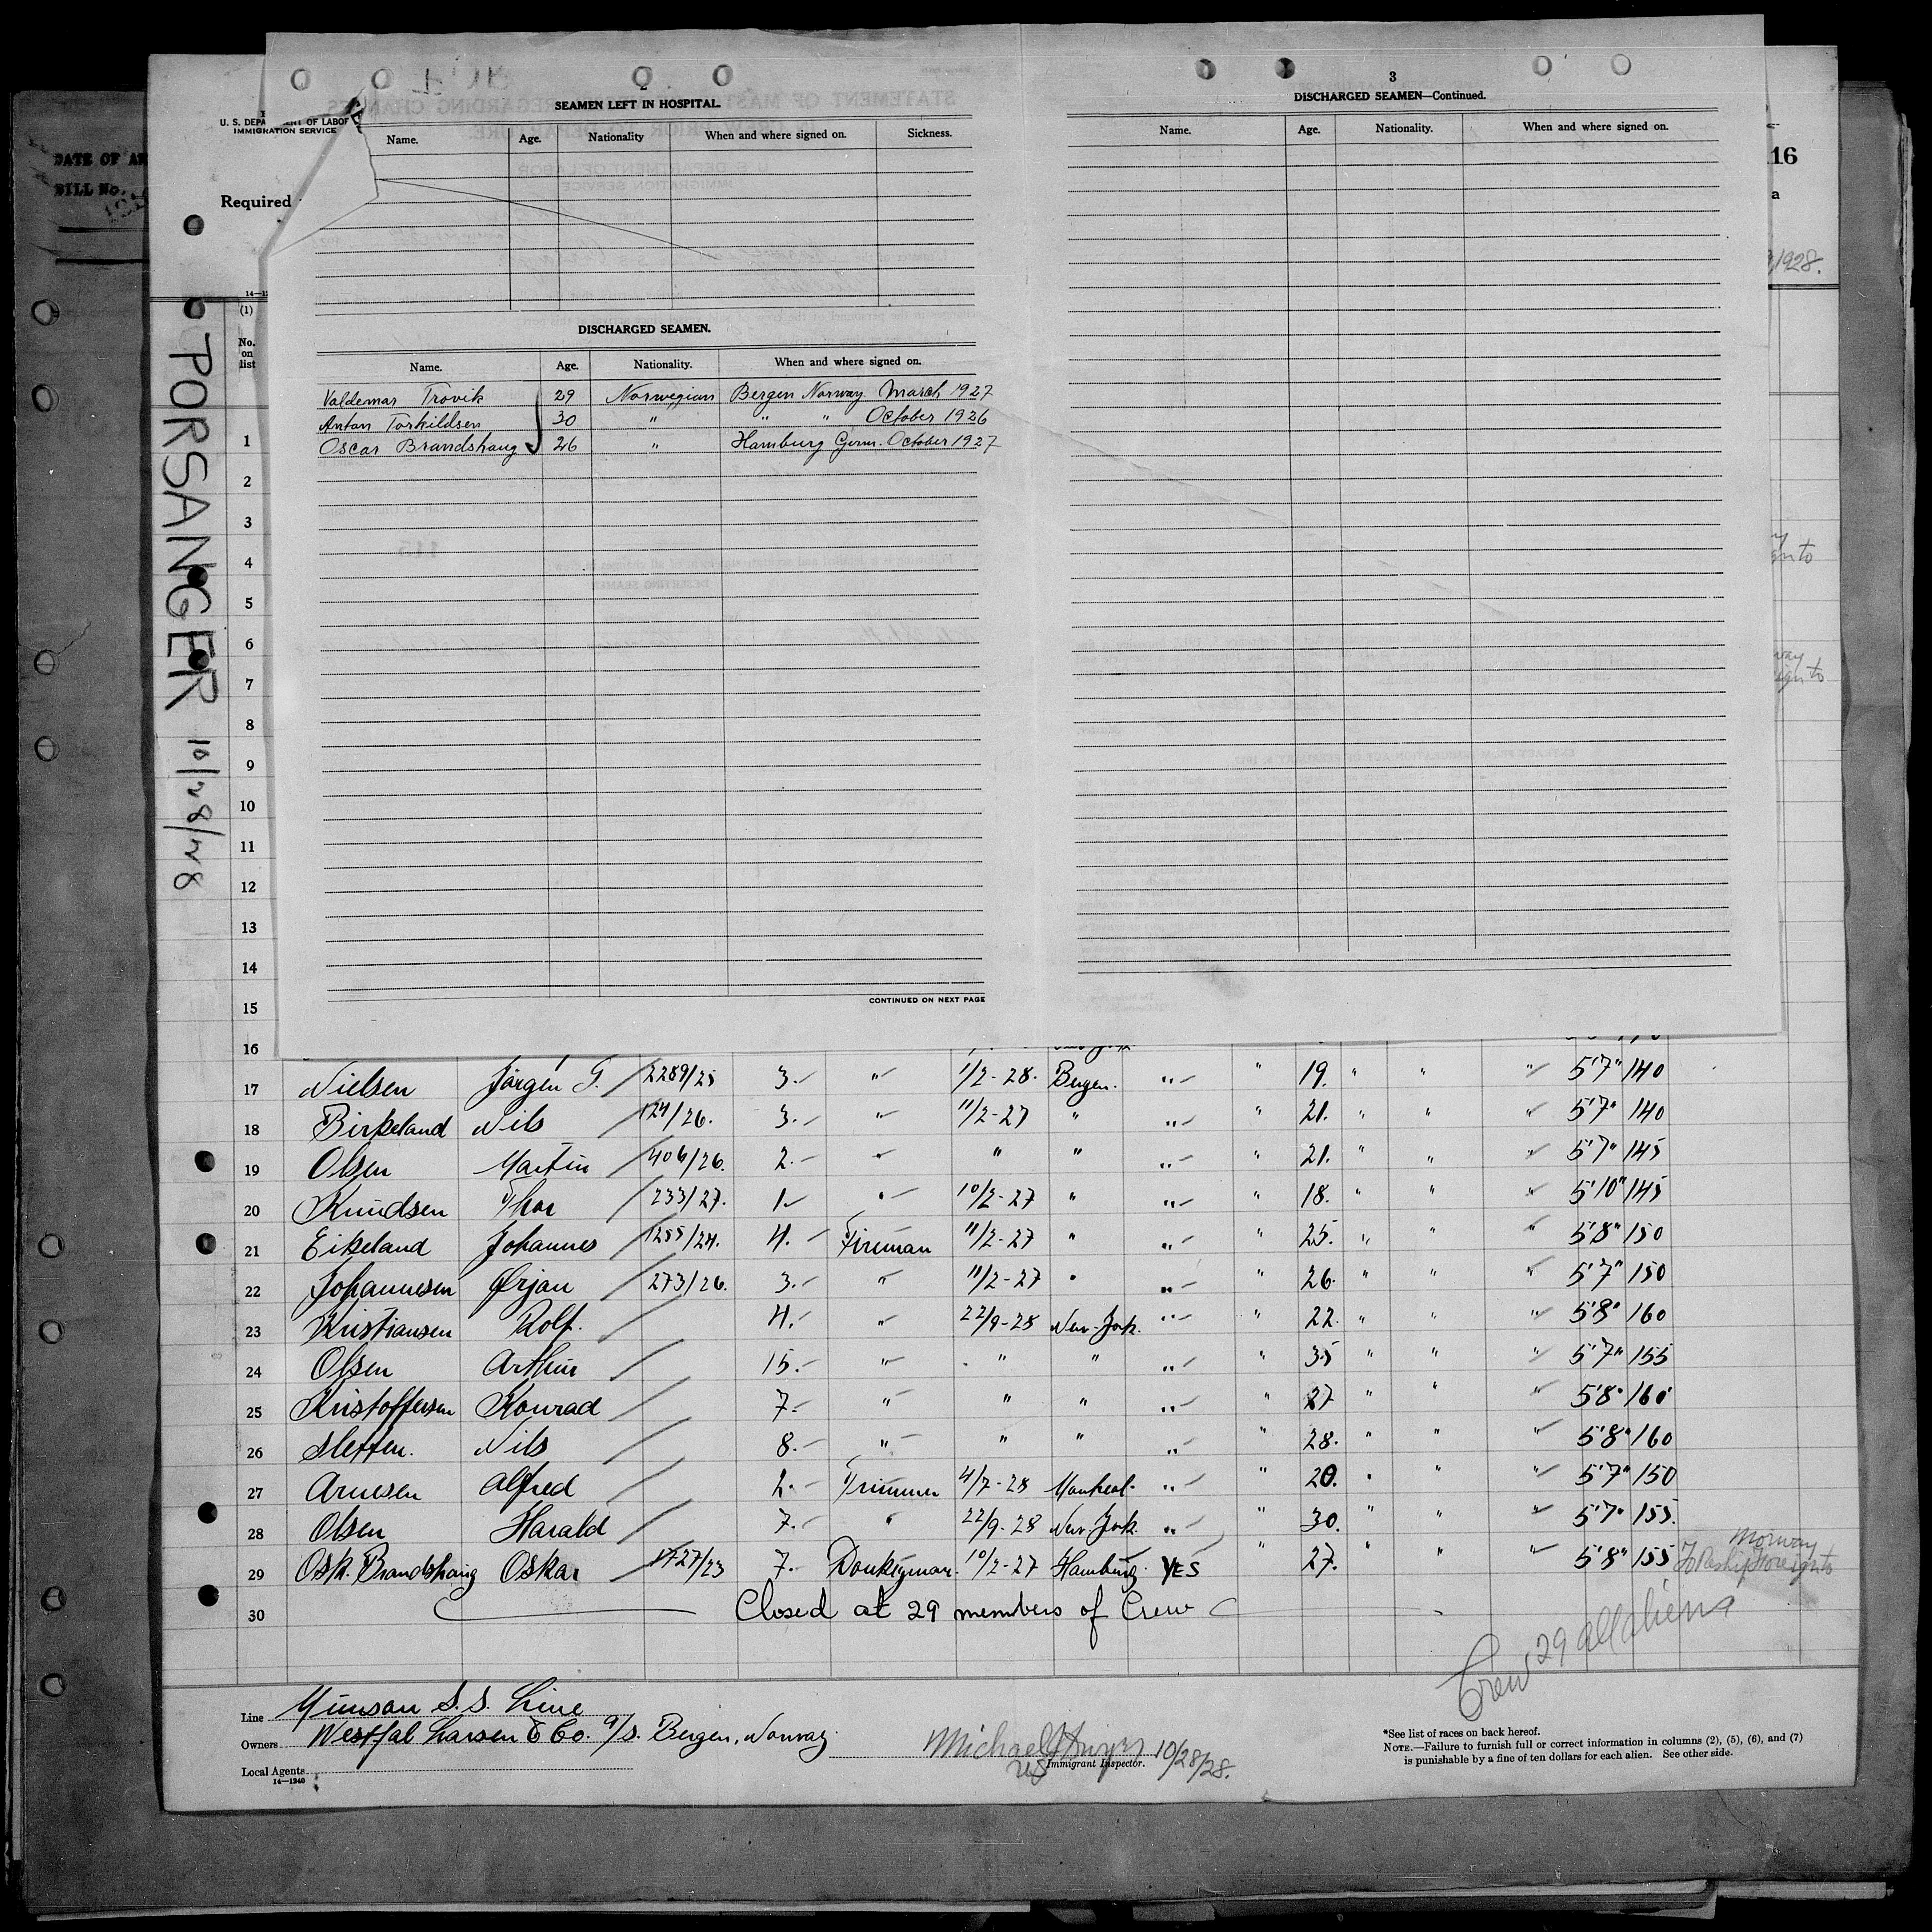 DATE OF AR
BILL No.
U. S. DEPA NT OF LABOR
IMMIGRATION SERVICE
Required
14—1
(1)
No. on list
PORSANGER 10/28/28
SEAMEN LEFT IN HOSPITAL.
Name. Age. Nationality When and where signed on. Sickness.
DISCHARGED SEAMEN.
Name. Age. Nationality. When and where signed on.
Valdemar Trovik 29 Norwegian Bergen Norway. March 1927
Anton Torkildsen 30 " " " October 1926
Oscar Brandshaug 26 " Hamburg Germ. October 1927
CONTINUED ON NEXT PAGE
3
DISCHARGED SEAMEN—Continued.
Name. Age. Nationality. When and where signed on.
16
a
/1928.
1
2
3
4
5
6
7
8
9
10
11
12
13
14
15
16
17 Nielsen Jörgen G. 2289/25 3. " 1/2-28. Bergen. " " 19. " " " 5'7" 140
18 Birkeland Nils 124/26. 3. " 11/2-27 " " " 21. " " " 5'7" 140
19 Olsen Martin 406/26. 2. " " " " " 21. " " " 5'7" 145
20 Knudsen Thor 233/27. 1 " 10/2-27 " " " 18. " " " 5'10" 145
21 Eikeland Johannes 1255/24. 4. Fireman 11/2-27 " " " 25. " " " 5'8" 150
22 Johannesen Ørjan 273/26. 3. " 11/2-27 " " " 26. " " " 5'7" 150
23 Kristiansen Rolf. 4. " 22/9-28 New-York. " " 22. " " " 5'8" 160
24 Olsen Arthur 15. " " " " " 35 " " " 5'7" 155
25 Kristoffersen Konrad 7. " " " " " 27 " " " 5'8" 160
26 Sletten. Nils 8. " " " " " 28. " " " 5'8" 160
27 Arnesen Alfred 2. Trimmer 4/7-28 Montreal. " " 20. " " " 5'7" 150
28 Olsen Harald 7. " 22/9-28 New-York. " " 30. " " " 5'7" 155.
29 Osk. Brandshaug Oskar 1727/23 7. Donkeyman. 10/2-27 Hamburg. YES " 27. " " " 5'8" 155 Norway
30 Closed at 29 members of Crew
Crew 29 all aliens
Line Munson S.S. Line
Owners Westfal Larsen & Co. A/S. Bergen, Norway.
Local Agents
14—1240
Michael J Dwyer 10/28/28.
US Immigrant Inspector.
*See list of races on back hereof.
NOTE.—Failure to furnish full or correct information in columns (2), (5), (6), and (7)
is punishable by a fine of ten dollars for each alien. See other side.